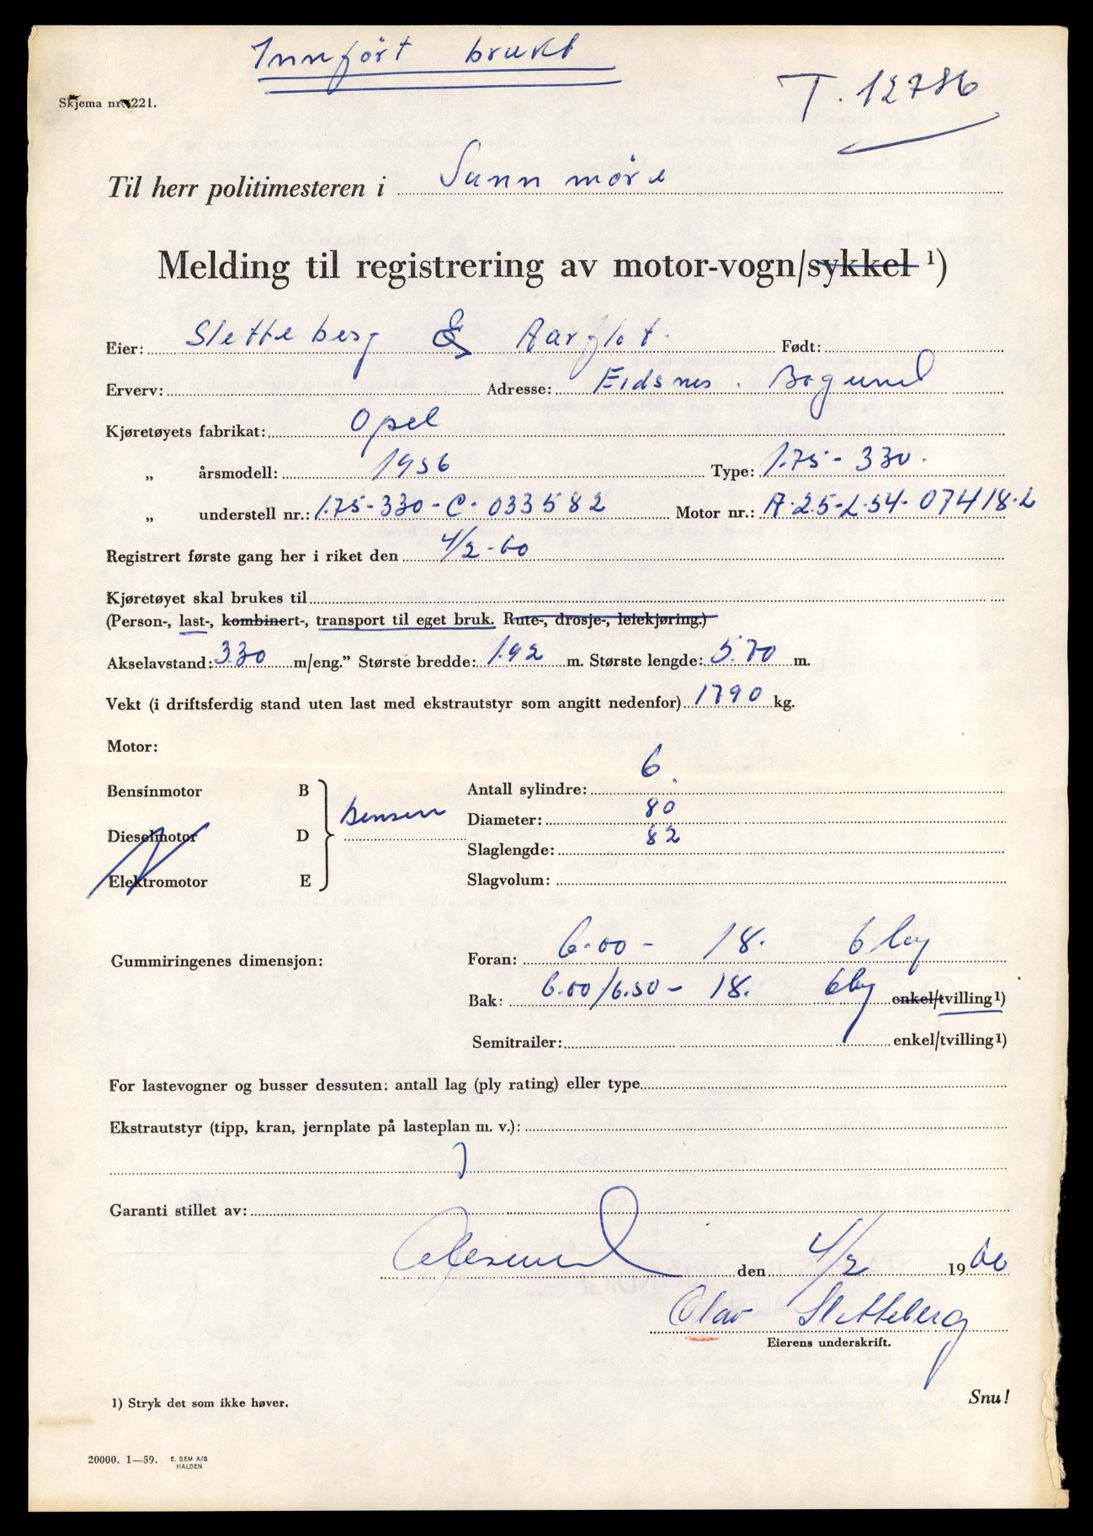 Innført brukt
Skjema nr. 221.
T. 12786
Til herr politimesteren i Sunnmøre
Melding til registrering av motor-vogn/sykkel ¹)
Eier: Sletteberg & Aarflot. Født:
Erverv: Adresse: Eidsnes. Borgund
Kjøretøyets fabrikat: Opel
„ årsmodell: 1956 Type: 1.75-330.
„ understell nr.: 1.75-330-C-033582 Motor nr.: A-2.5-L-54-07418-L
Registrert første gang her i riket den 4/2-60
Kjøretøyet skal brukes til
(Person-, last-, kombinert-, transport til eget bruk. Rute-, drosje-, leiekjøring.)
Akselavstand: 3.30 m/eng.” Største bredde: 1.92 m. Største lengde: 5.70 m.
Vekt (i driftsferdig stand uten last med ekstrautstyr som angitt nedenfor) 1790 kg.
Motor:
Bensinmotor B Antall sylindre: 6
Diameter: 80
Dieselmotor D Bensin
Slaglengde: 82
Elektromotor E Slagvolum:
Gummiringenes dimensjon: Foran: 6.00 - 18. 6 lag
Bak: 6.00/6.50 - 18. 6 lag enkel/tvilling ¹)
Semitrailer: enkel/tvilling ¹)
For lastevogner og busser dessuten: antall lag (ply rating) eller type
Ekstrautstyr (tipp, kran, jernplate på lasteplan m. v.):
Garanti stillet av:
Aalesund den 4/2 1960
Olav Sletteberg
Eierens underskrift.
1) Stryk det som ikke høver.
Snu!
20000. 1—59. E. SEM A/S
HALDEN